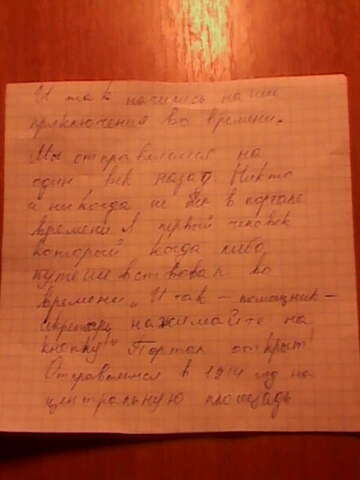 И так начались наши
приключения во времени.
Мы отправляемся на
один век назад. Никто
и никогда не был в портале
времени Я первый человек
который когда либо
путешествовал во
времени. И так - помощник -
секретарь нажимайте на
кнопку!" Портал открыт!
Отправляемся в 1914 год на
центральную площадь